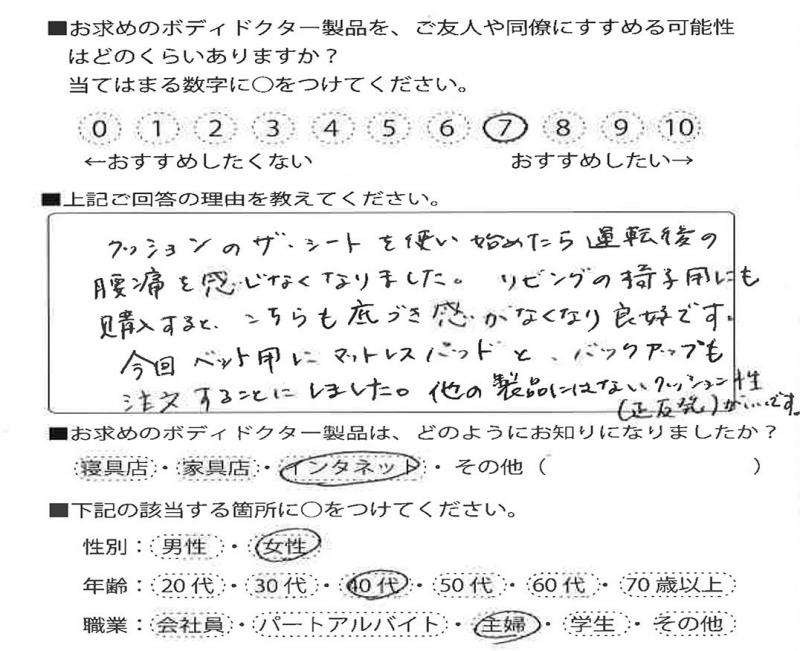 ■お求めのボディドクター製品を、ご友人や同僚にすすめる可能性
はどのくらいありますか？
当てはまる数字に○をつけてください。
0 1 2 3 4 5 6 7 8 9 10
←おすすめしたくない おすすめしたい→
■上記ご回答の理由を教えてください。
クッションのザ・シートを使い始めたら運転後の
腰痛を感じなくなりました。 リビングの椅子用にも
購入すると、こちらも底づき感がなくなり良好です。
今回ベット用にマットレスパッドと、バックアップも
注文することにしました。他の製品にはないクッション性
(正反発)がいいです。
■お求めのボディドクター製品は、どのようにお知りになりましたか？
寝具店・家具店・インタネット・その他（ ）
■下記の該当する箇所に○をつけてください。
性別：男性・女性
年齢：20代・30代・40代・50代・60代・70歳以上
職業：会社員・パートアルバイト・主婦・学生・その他